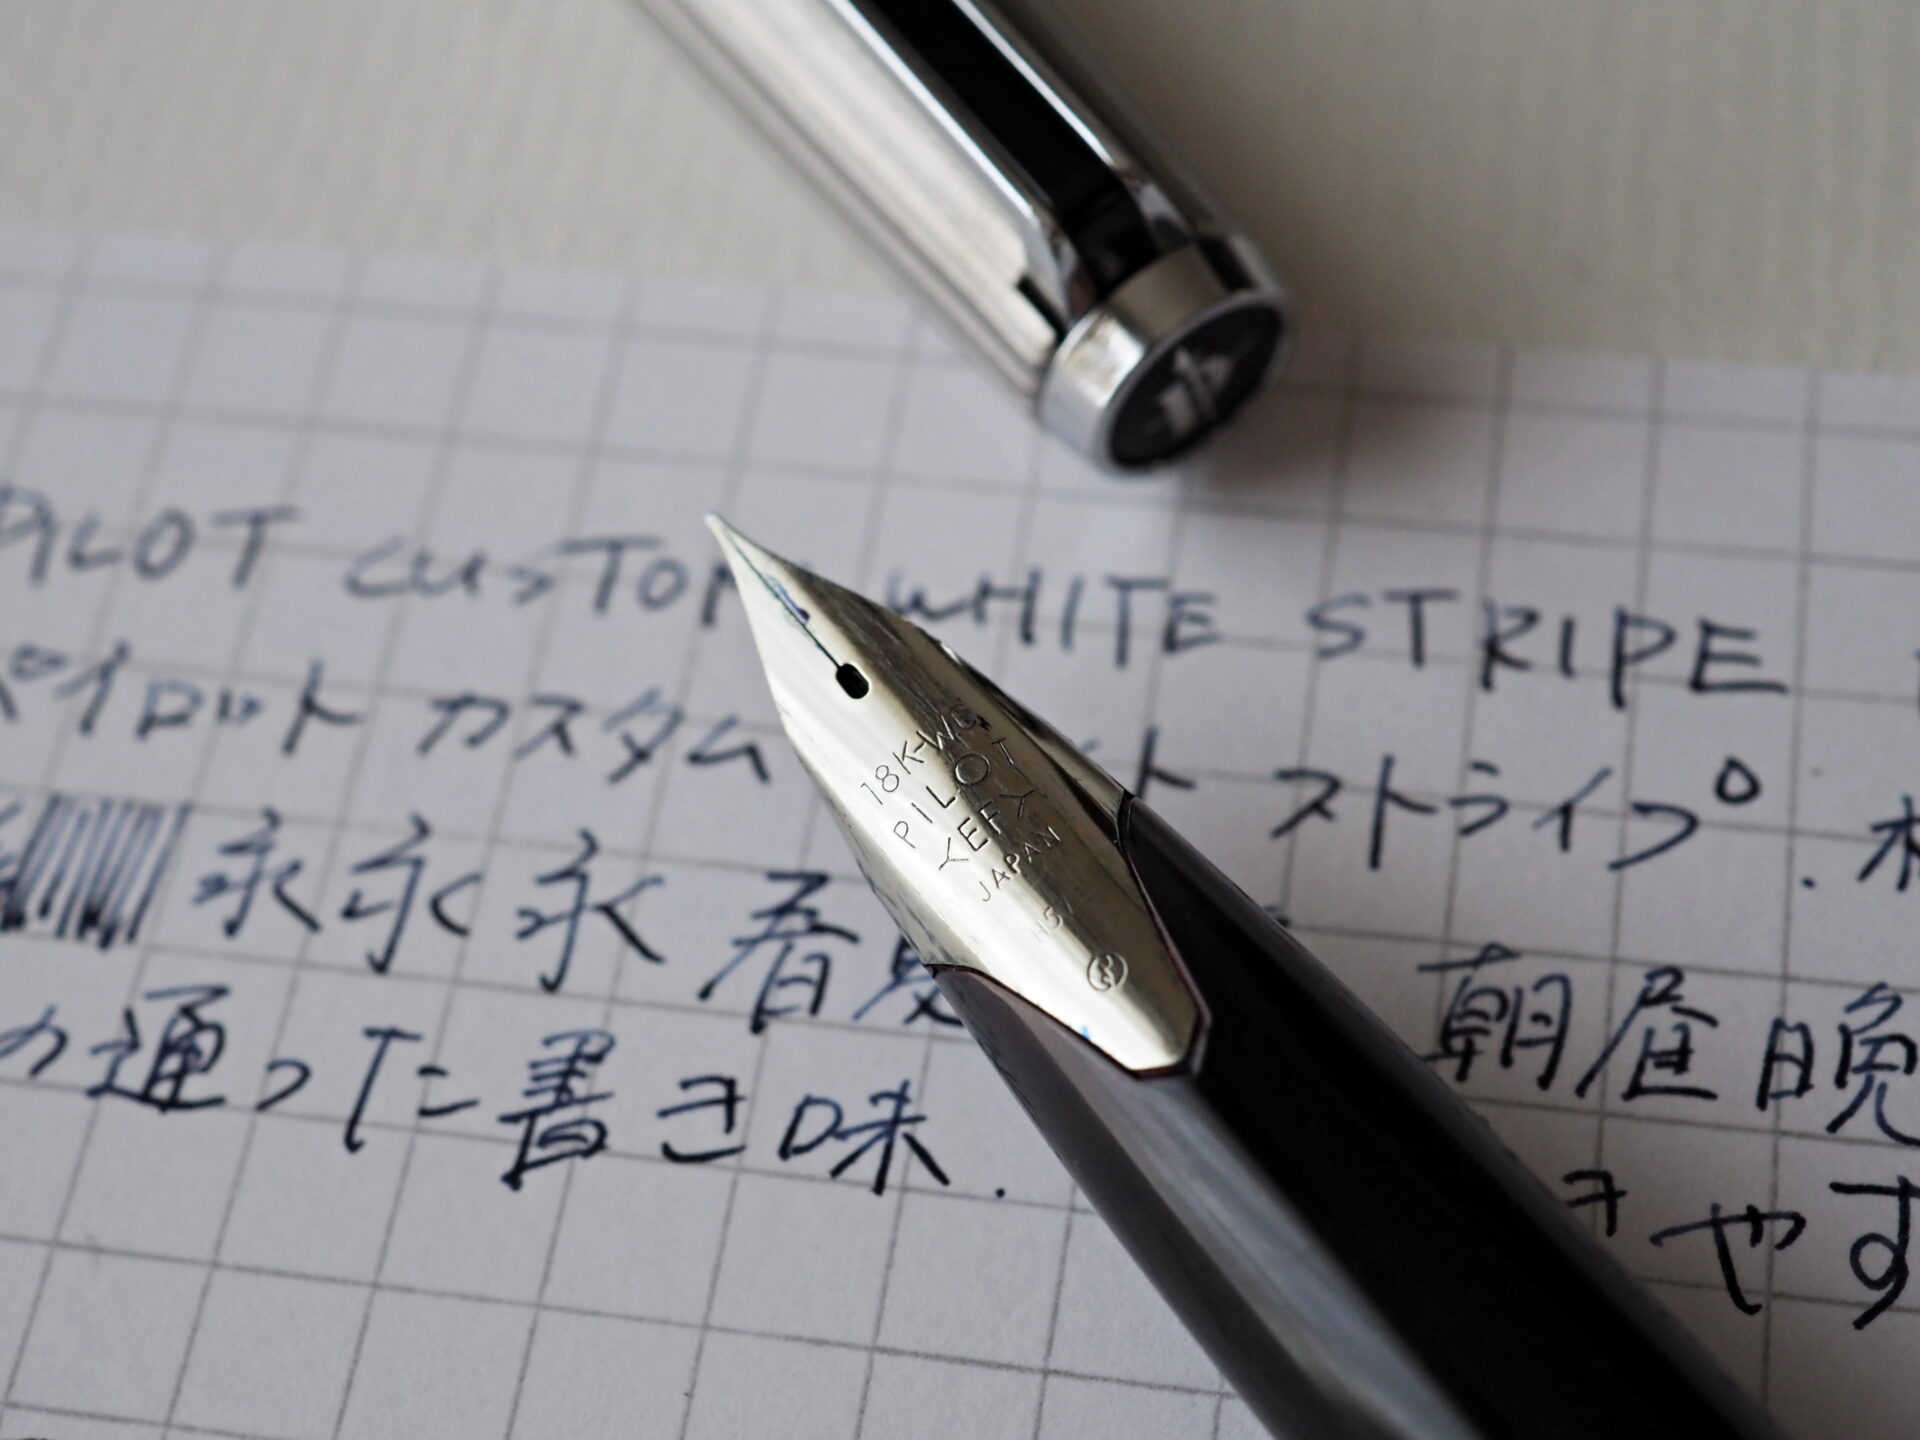 PILOT CUSTOM WHITE STRIPE
パイロット カスタム ト ストライプ.
永永永 春夏 朝昼晩
の通った書き味.
きやす
18K-WG.
PILOT
YEFY
JAPAN
H57